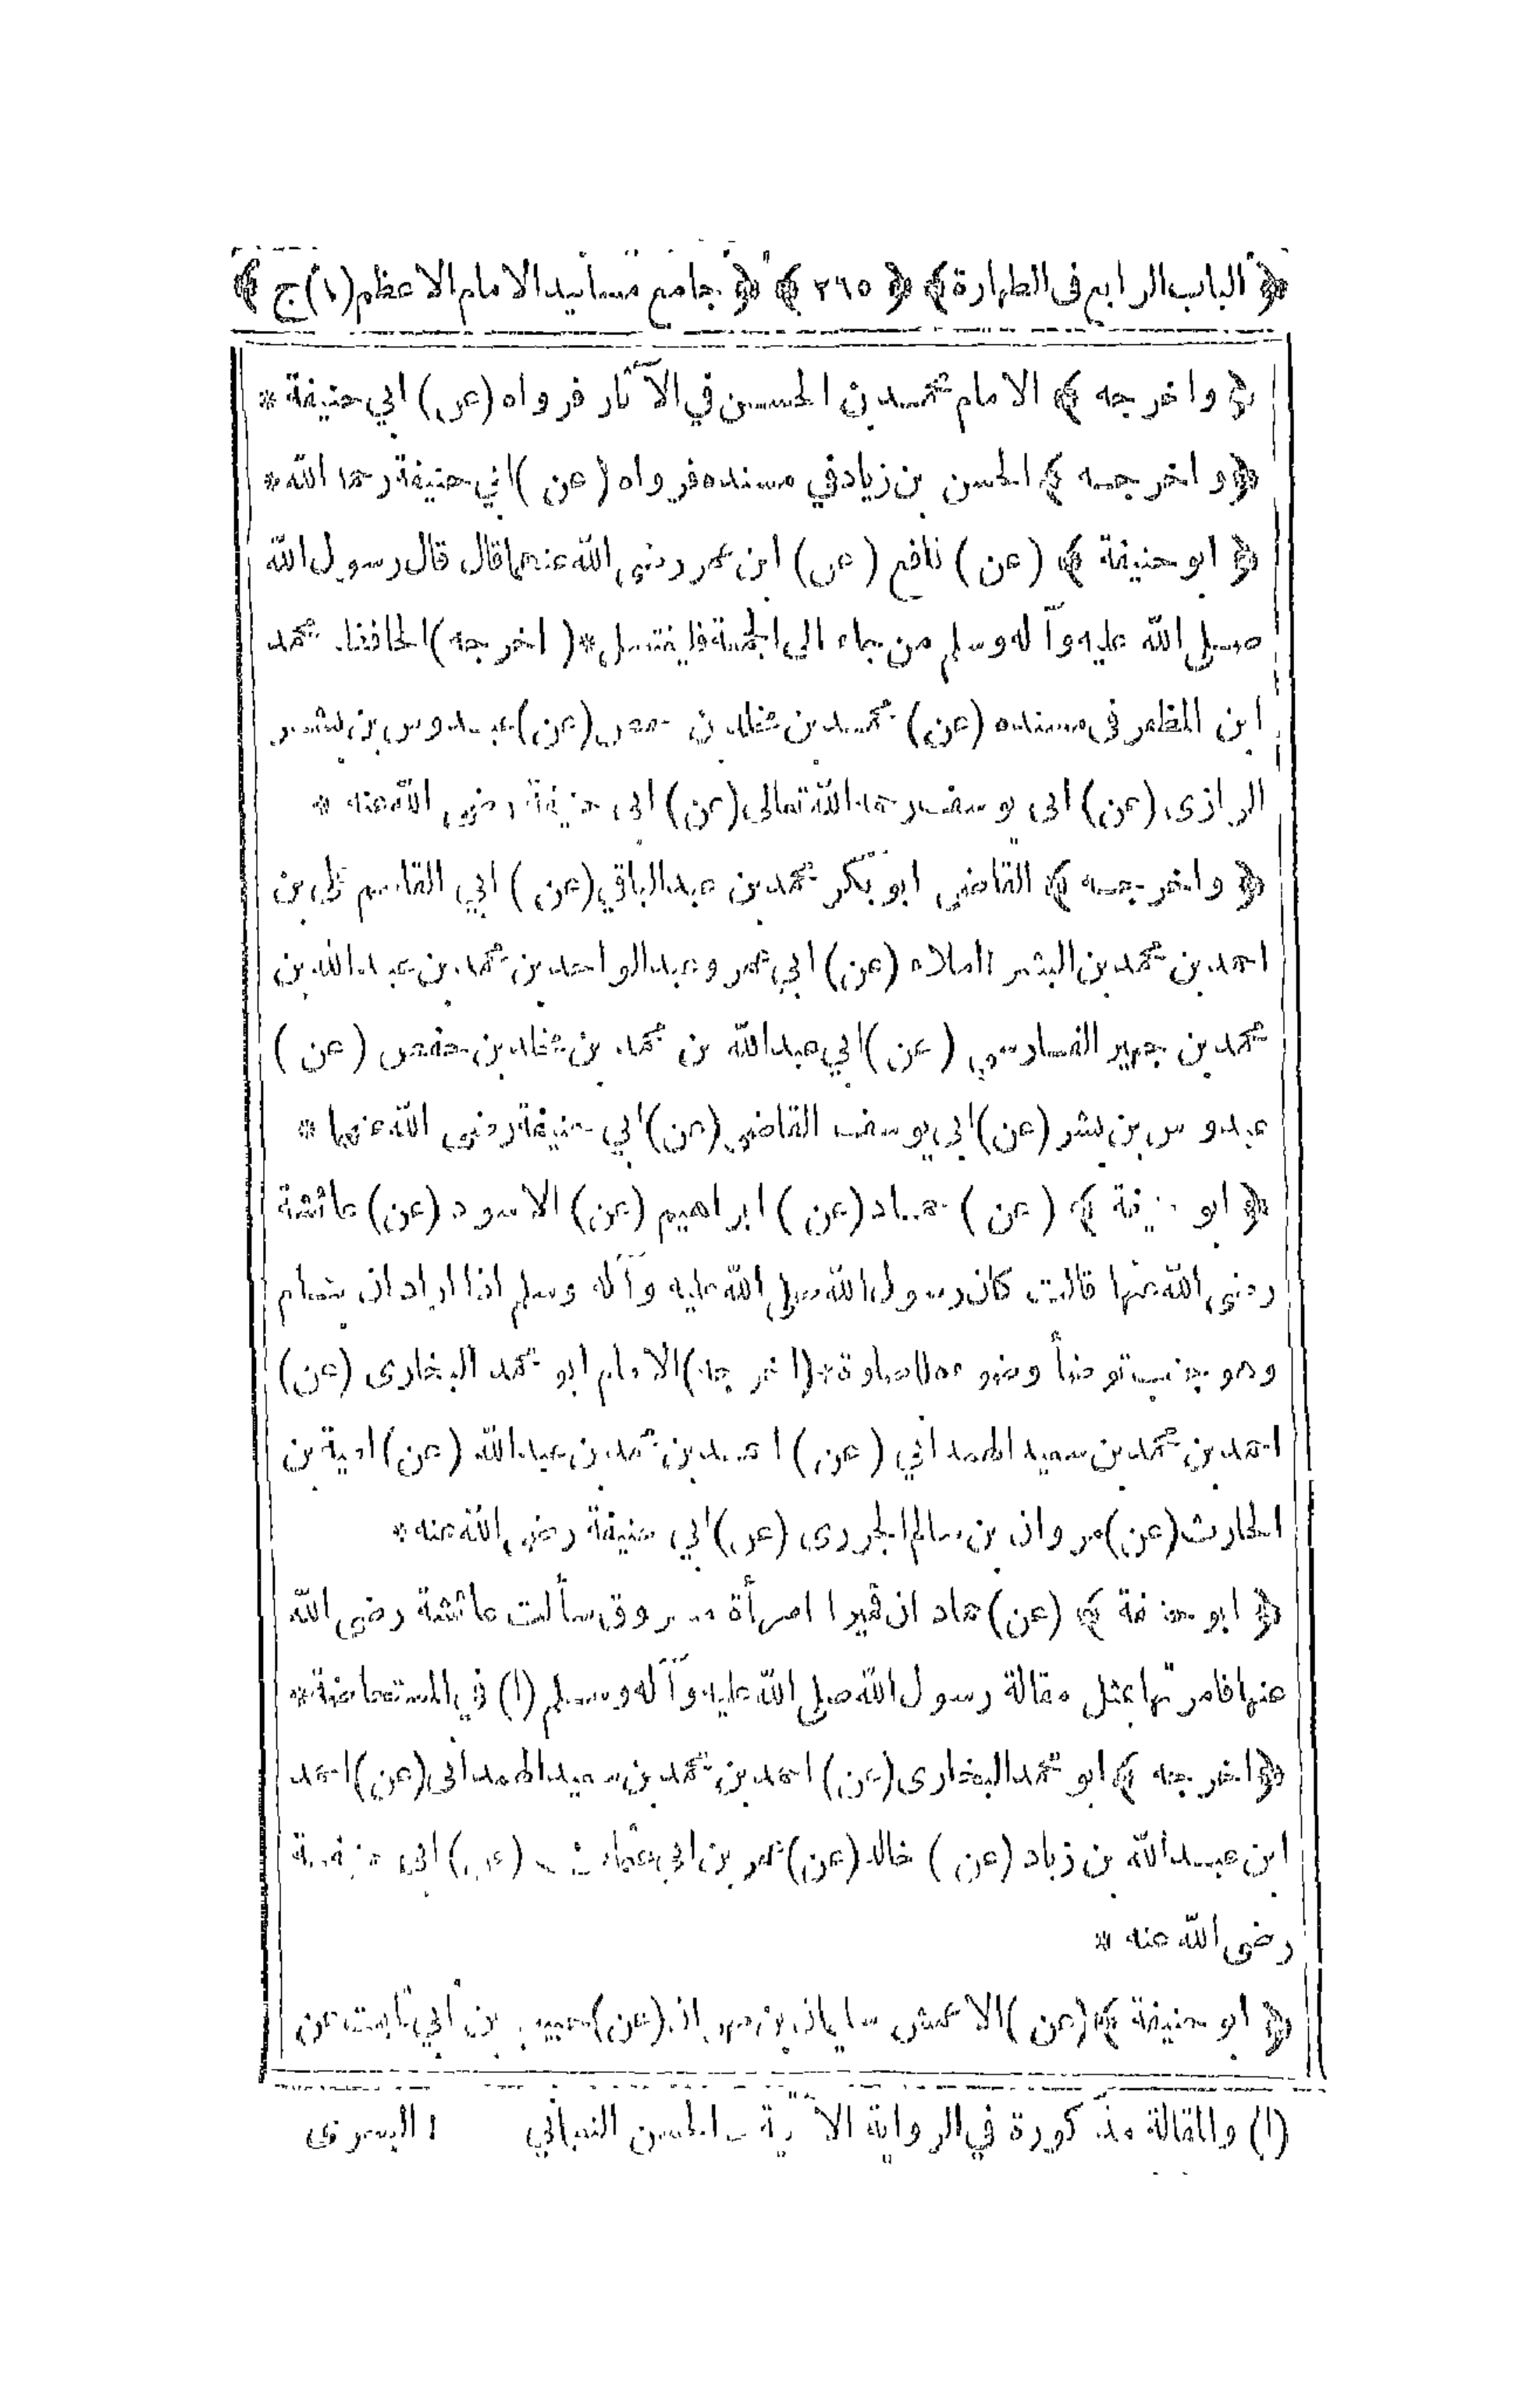 ﴿ الباب الرابع فى الطهارة ﴾ ﴿ ٢٦٥ ﴾ ﴿ جامع مسانيد الامام الاعظم (١) ج ﴾
﴿ واخرجه ﴾ الامام محمد بن الحسن في الآثار فرواه (عن) ابي حنيفة *
﴿ واخرجه ﴾ الحسن بن زياد في مسنده فرواه (عن) ابي حنيفة رحمه الله *
﴿ ابو حنيفة ﴾ (عن) نافع (عن) ابن عمر رضى الله عنهما قال قال رسول الله
صلى الله عليه وآله وسلم من جاء الى الجمعة فليغتسل * (اخرجه) الحافظ محمد
ابن المظفر فى مسنده (عن) محمد بن مخلد بن حفص (عن) عبدوس بن بشر
الرازى (عن) ابى يوسف رحمه الله تعالى (عن) ابى حنيفة رضى الله عنه *
﴿ واخرجه ﴾ القاضى ابو بكر محمد بن عبد الباقي (عن) ابي القاسم علي بن
احمد بن محمد بن البشر الملاء (عن) ابي عمر وعبد الواحد بن محمد بن عبد الله بن
محمد بن جرير الفارسي (عن) ابي عبد الله بن محمد بن مخلد بن حفص (عن)
عبدوس بن بشر (عن) ابي يوسف القاضى (عن) ابي حنيفة رضى الله عنهما *
﴿ ابو حنيفة ﴾ (عن) حماد (عن) ابراهيم (عن) الاسود (عن) عائشة
رضى الله عنها قالت كان رسول الله صلى الله عليه وآله وسلم اذا اراد ان ينام
وهو جنب توضأ وضوءه للصلوة * (اخرجه) الامام ابو محمد البخارى (عن)
احمد بن محمد بن سعيد الهمداني (عن) احمد بن محمد بن عبد الله (عن) امية بن
الحارث (عن) مروان بن سالم الجزرى (عن) ابي حنيفة رضى الله عنه *
﴿ ابو حنيفة ﴾ (عن) حماد ان قيرا امرأة مسروق سألت عائشة رضى الله
عنها فامرتها بمثل مقالة رسول الله صلى الله عليه وآله وسلم (١) في المستحاضة *
﴿ اخرجه ﴾ ابو محمد البخارى (عن) احمد بن محمد بن سعيد الهمدانى (عن) احمد
ابن عبد الله بن زياد (عن) خالد (عن) عمر بن ابي (عن) ابى حنيفة
رضى الله عنه *
﴿ ابو حنيفة ﴾ (عن) الاعمش سليمان بن مهران (عن) حبيب بن أبي ثابت عن
(١) والمقالة مذكورة في الرواية الآتية ـ الحسن النعماني